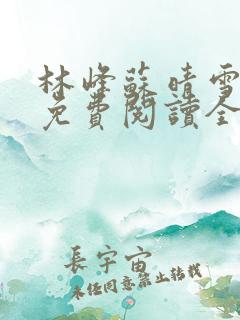 林峰蘇晴雪
免費閱讀全
長宇宙
未經同意禁止轉載